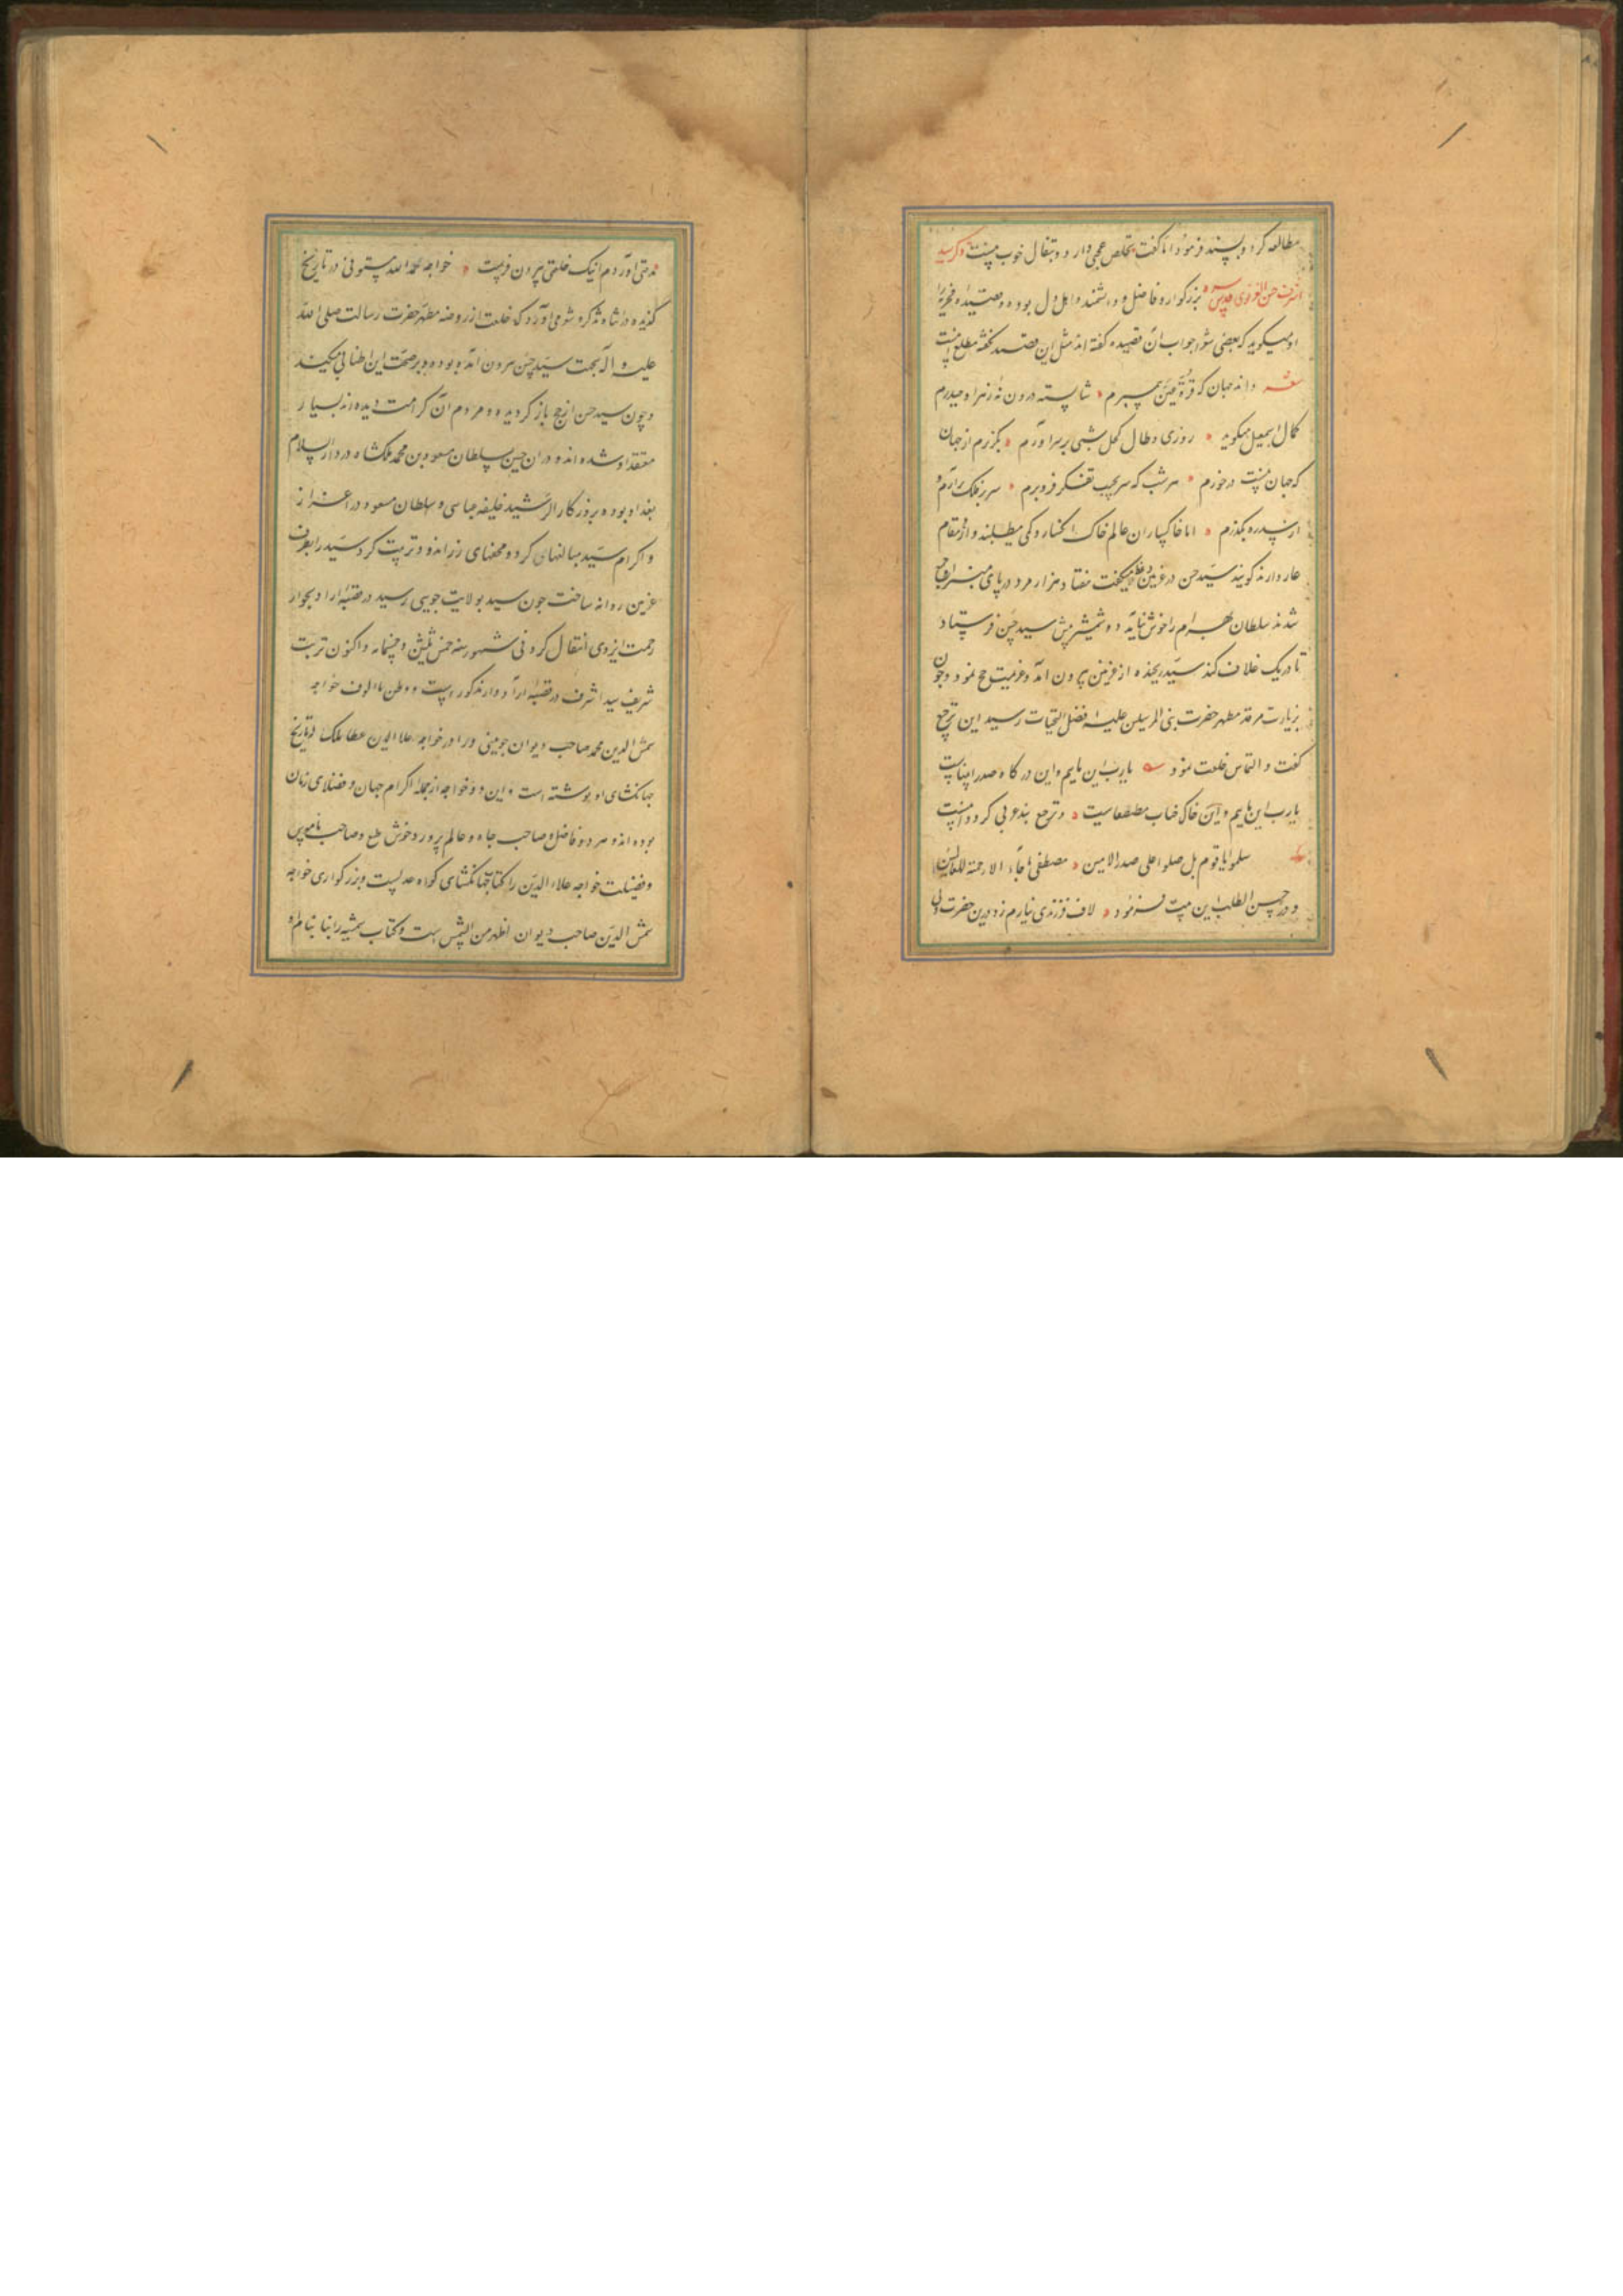 مطالعه کرد و بپسند فرمود اما گفت تخلص عجمی دار و و بتفال خوب نیست ذکر سید
اشرف حسن الغزنوی قدس سره بزرکوار و فاضل و دانشمند و اهل دل بوده و قصیده فخریه را
او میکوید که بعضی شعرا جواب آن قصیده گفته اند مثل این قصیده نگفته مطلع اینست
داند جهان که قرة عین پیمبرم شایسته در ون نه زهرا و حیدرم
کمال اسمعیل میکوید روزی وطا کحلی شب بر سر آورم بگذرم از جهان
که جهان نیست درخورم هر شب که سر بجیب تفکر فرو برم سر بر فلک برآرم و
از سدره بگذرم اما خاکساران عالم خاک انکسار و کمی میطلبند و از مقام
عار دارند کویند سید حسن در غزنین وعظ میکفت هفتاد هزار مرد در پای منبر او جمع
شدند سلطان بهرام را خوش نیامد دو شمشیر پیش سید حسن فرستاد
تا در یک غلاف کند سید رنجیده از غزنین بیرون آمد و عزیمت حج نمود و چون
بزیارت مرقد مطهر حضرت نبی المرسلین علیه افضل التحیات رسید این ترجیع
گفت و التماس خلعت نمود یارب این مایم و این درکاه صدر انبیاست
یارب این مایم و این خاک جناب مصطفاست و ترجیع بند عربی کرد و اینست
سلموا یا قوم بل صلوا علی صدر الامین مصطفی ما جاء الا رحمة للعالمین
و در حسن الطلب این بیت فرمود لاف فرزندی نیارم زد درین حضرت ولی
مدحتی آوردم اینک خلعتی بیرون فرست خواجه حمد الله مستوفی در تاریخ
گزیده در اثناء تذکره شعرا می آورد که خلعت از روضه مطهر حضرت رسالت صلی الله
علیه و آله بجهت سید حسن بیرون آمده بوده و بر صحت این اطنابی میکند
و چون سید حسن از حج باز گردیده و مردم آن کرامت دیده اند بسیار
معتقد او شده اند و در آن حین سلطان مسعود بن محمد ملکشاه در دار السلام
بغداد بوده بروزکار الرشید خلیفه عباسی و سلطان مسعود در اعزاز
و اکرام سید مبالغهای کرد و محفهای زر اندود ترتیب کرد سید را بطرف
غزنین روانه ساخت چون سید بولایت جوین رسید در قصبه ازادوار بجوار
رحمت ایزدی انتقال کرد فی شهور سنه خمس ثلثین و خمسمایه و اکنون تربت
شریف سید اشرف در قصبه ازادوار مذکور است و وطن مالوف خواجه
شمس الدین محمد صاحب دیوان جوینی و برادر خواجه علاالدین عطا ملک که تاریخ
جهانکشای او نوشته است و این دو خواجه از جمله اکرام جهان و فضلای زمان
بوده اند و هر دو فاضل و صاحب جاه و عالم پرور و خوش طبع و صاحب ناموس
و فضیلت خواجه علاء الدین را کتاب جهانکشای کواه عدلیست و بزرکواری خواجه
شمس الدین صاحب دیوان اظهر من الشمس است و کتاب شمسیه را بنام او